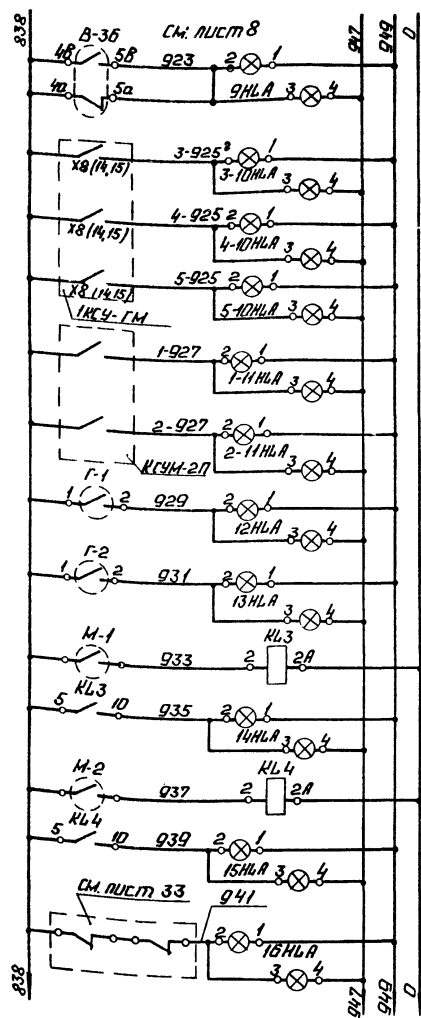 838 См. лист 8 947 949 0
В-3б
4В 5В 923 2 1
4а 5а 9HLA 3 4
3-925 2 1
X8 (14,15) 3-10HLA 3 4
4-925 2 1
X8 (14,15) 4-10HLA 3 4
5-925 2 1
X8 (14,15) 5-10HLA 3 4
1КСУ-ГМ
1-927 2 1
1-11HLA 3 4
2-927 2 1
2-11HLA 3 4
КСУМ-2П
Г-1
1 2 929 2 1
12HLA 3 4
Г-2
1 2 931 2 1
13HLA 3 4
М-1 KL3
933 2 2А
KL3
5 10 935 2 1
14HLA 3 4
М-2 KL4
937 2 2А
KL4
5 10 939 2 1
15HLA 3 4
См. лист 33 941
2 1
16HLA
3 4
838 947 949 0